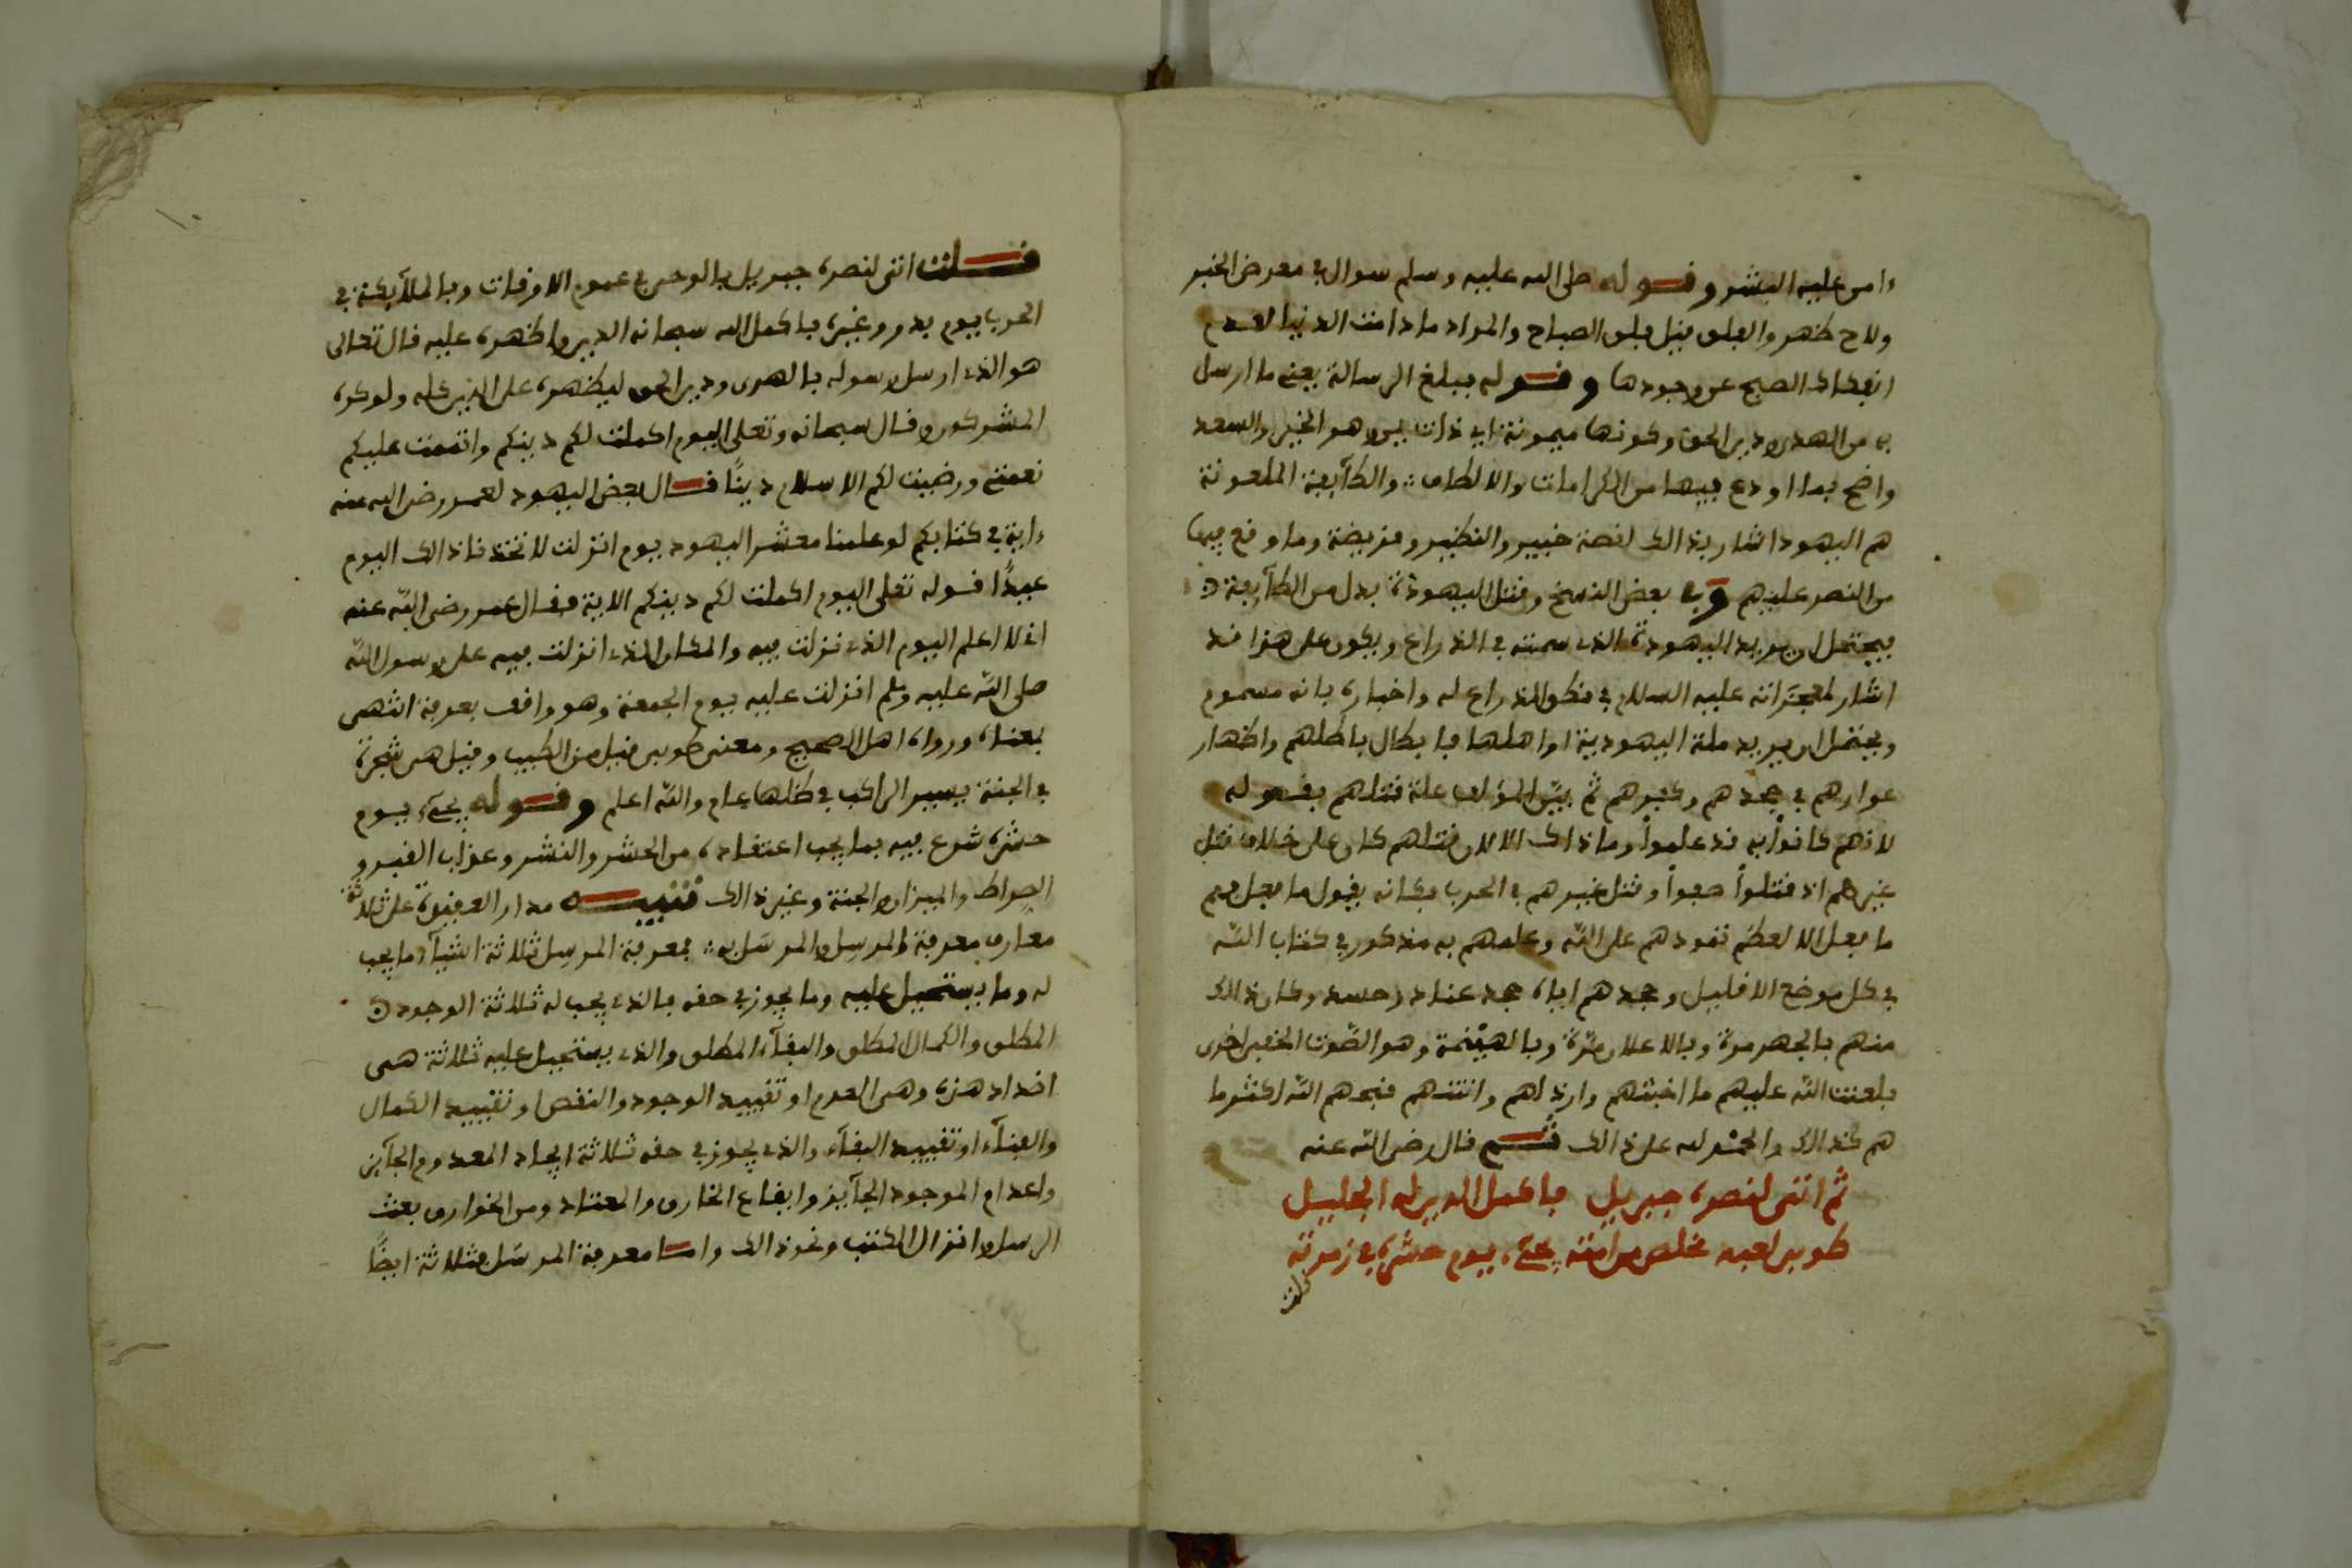 ءامن عليه البشر وقوله صلى الله عليه وسلم سوال في معرض الخبر
ولاح ظهر والفلق قيل فلق الصباح والمراد ما دامت الدنيا لعدم
انفكاك الصبح عن وجودها وقوله يبلغ الرسالة يعني ما ارسل
به من الهدى ودين الحق وكونها ميمونة اي ذات يمن وهو الخير والسعد
واضح بما اودع فيها من الكرامات والالطاف والطآيفة الملعونة
هم اليهود اشار بذالك لقصة خيبر والنظير وقريضة وما وقع فيها
من النصر عليهم وفي بعض النسخ وقتل اليهودة بدل من الطآيفة
فيحتمل ان يريد اليهودة الذي سمته في الذراع ويكون على هذا قد
اشار لمعجزاته عليه السلام في نطق الذراع له واخباره بانه مسموم
ويحتمل ان يريد ملة اليهودية او اهلها بابطال باطلهم واظهار
عوارهم في جحدهم وكفرهم ثم بيّن المؤلف علة قتلهم بقوله
لانهم كانوا به قد علموا وما ذاك الا لان قتلهم كان على خلاف قتل
غيرهم اذ قتلوا صبوا وقتل غيرهم في الحرب فكانه يقول ما فعل بهم
ما فعل الا لعظم تمردهم على الله وعلمهم به مذكور في كتاب الله
في كل موضع الا قليل وجحدهم اياه جحد عناد وحسد وكان ذالك
منهم بالجهر مرة وبالاعلان مرة وبالهينمة وهو الصوت الخفي اخرى
فلعنت الله عليهم ما اخبثهم وارذلهم وانتنهم قبحهم الله اكثر ما
هم كذالك والحمد لله على ذالك ثم قال رضي الله عنه
ثم اتى لنصره جبريل فاكمل الدين له الجليل
طوبى لعبد مخلص من امته يجيء يوم حشره في زمرته
قلت
قلت اتى لنصره جبريل بالوحي في عموم الاوقات وبالملآيكة في
الحرب يوم بدر وغيره فاكمل الله سبحانه الدين واظهره عليه قال تعالى
هو الذي ارسل رسوله بالهدى ودين الحق ليظهره على الدين كله ولو كره
المشركون وقال سبحانه وتعلى اليوم اكملت لكم دينكم واتممت عليكم
نعمتي ورضيت لكم الاسلام دينًا قال بعض اليهود لعمر رضي الله عنه
ءاية في كتابكم لو علينا معشر اليهود يوم انزلت لاتخذنا ذالك اليوم
عيدًا قوله تعلى اليوم اكملت لكم دينكم الاية فقال عمر رضي الله عنه
اني لا اعلم اليوم الذي نزلت فيه والمكان الذي انزلت فيه على رسول الله
صلى الله عليه وسلم انزلت عليه يوم الجمعة وهو واقف بعرفة انتهى
بمعناه ورواه اهل الصحيح ومعنى طوبى قيل من الطيب وقيل هي شجرة
في الجنة يسير الراكب في ظلها عام والله اعلم وقوله يجيء يوم
حشره شرع فيه بما يجب اعتقاده من الحشر والنشر وعذاب القبر و
الصراط والميزان والجنة وغير ذالك تنبيه مدار العقيدة على ثلاثة
معارف معرفة المرسِل والمرسَل به فمعرفة المرسِل ثلاثة اشيآء ما يجب
له وما يستحيل عليه وما يجوز في حقه فالذي يجب له ثلاثة الوجود
المطلق والكمال المطلق والبقآء المطلق والذي يستحيل عليه ثلاثة هي
اضداد هذه وهي العدم او تقييد الوجود والنقص او تقييد الكمال
والفنآء او تقييد البقآء والذي يجوز في حقه ثلاثة ايجاد المعدوم الجآيز
واعدام الموجود الجآيز وايقاع الخارق والمعتاد ومن الخوارق بعث
الرسل وانزال الكتب ونحو ذالك واما معرفة المرسَل فثلاثة ايضًا